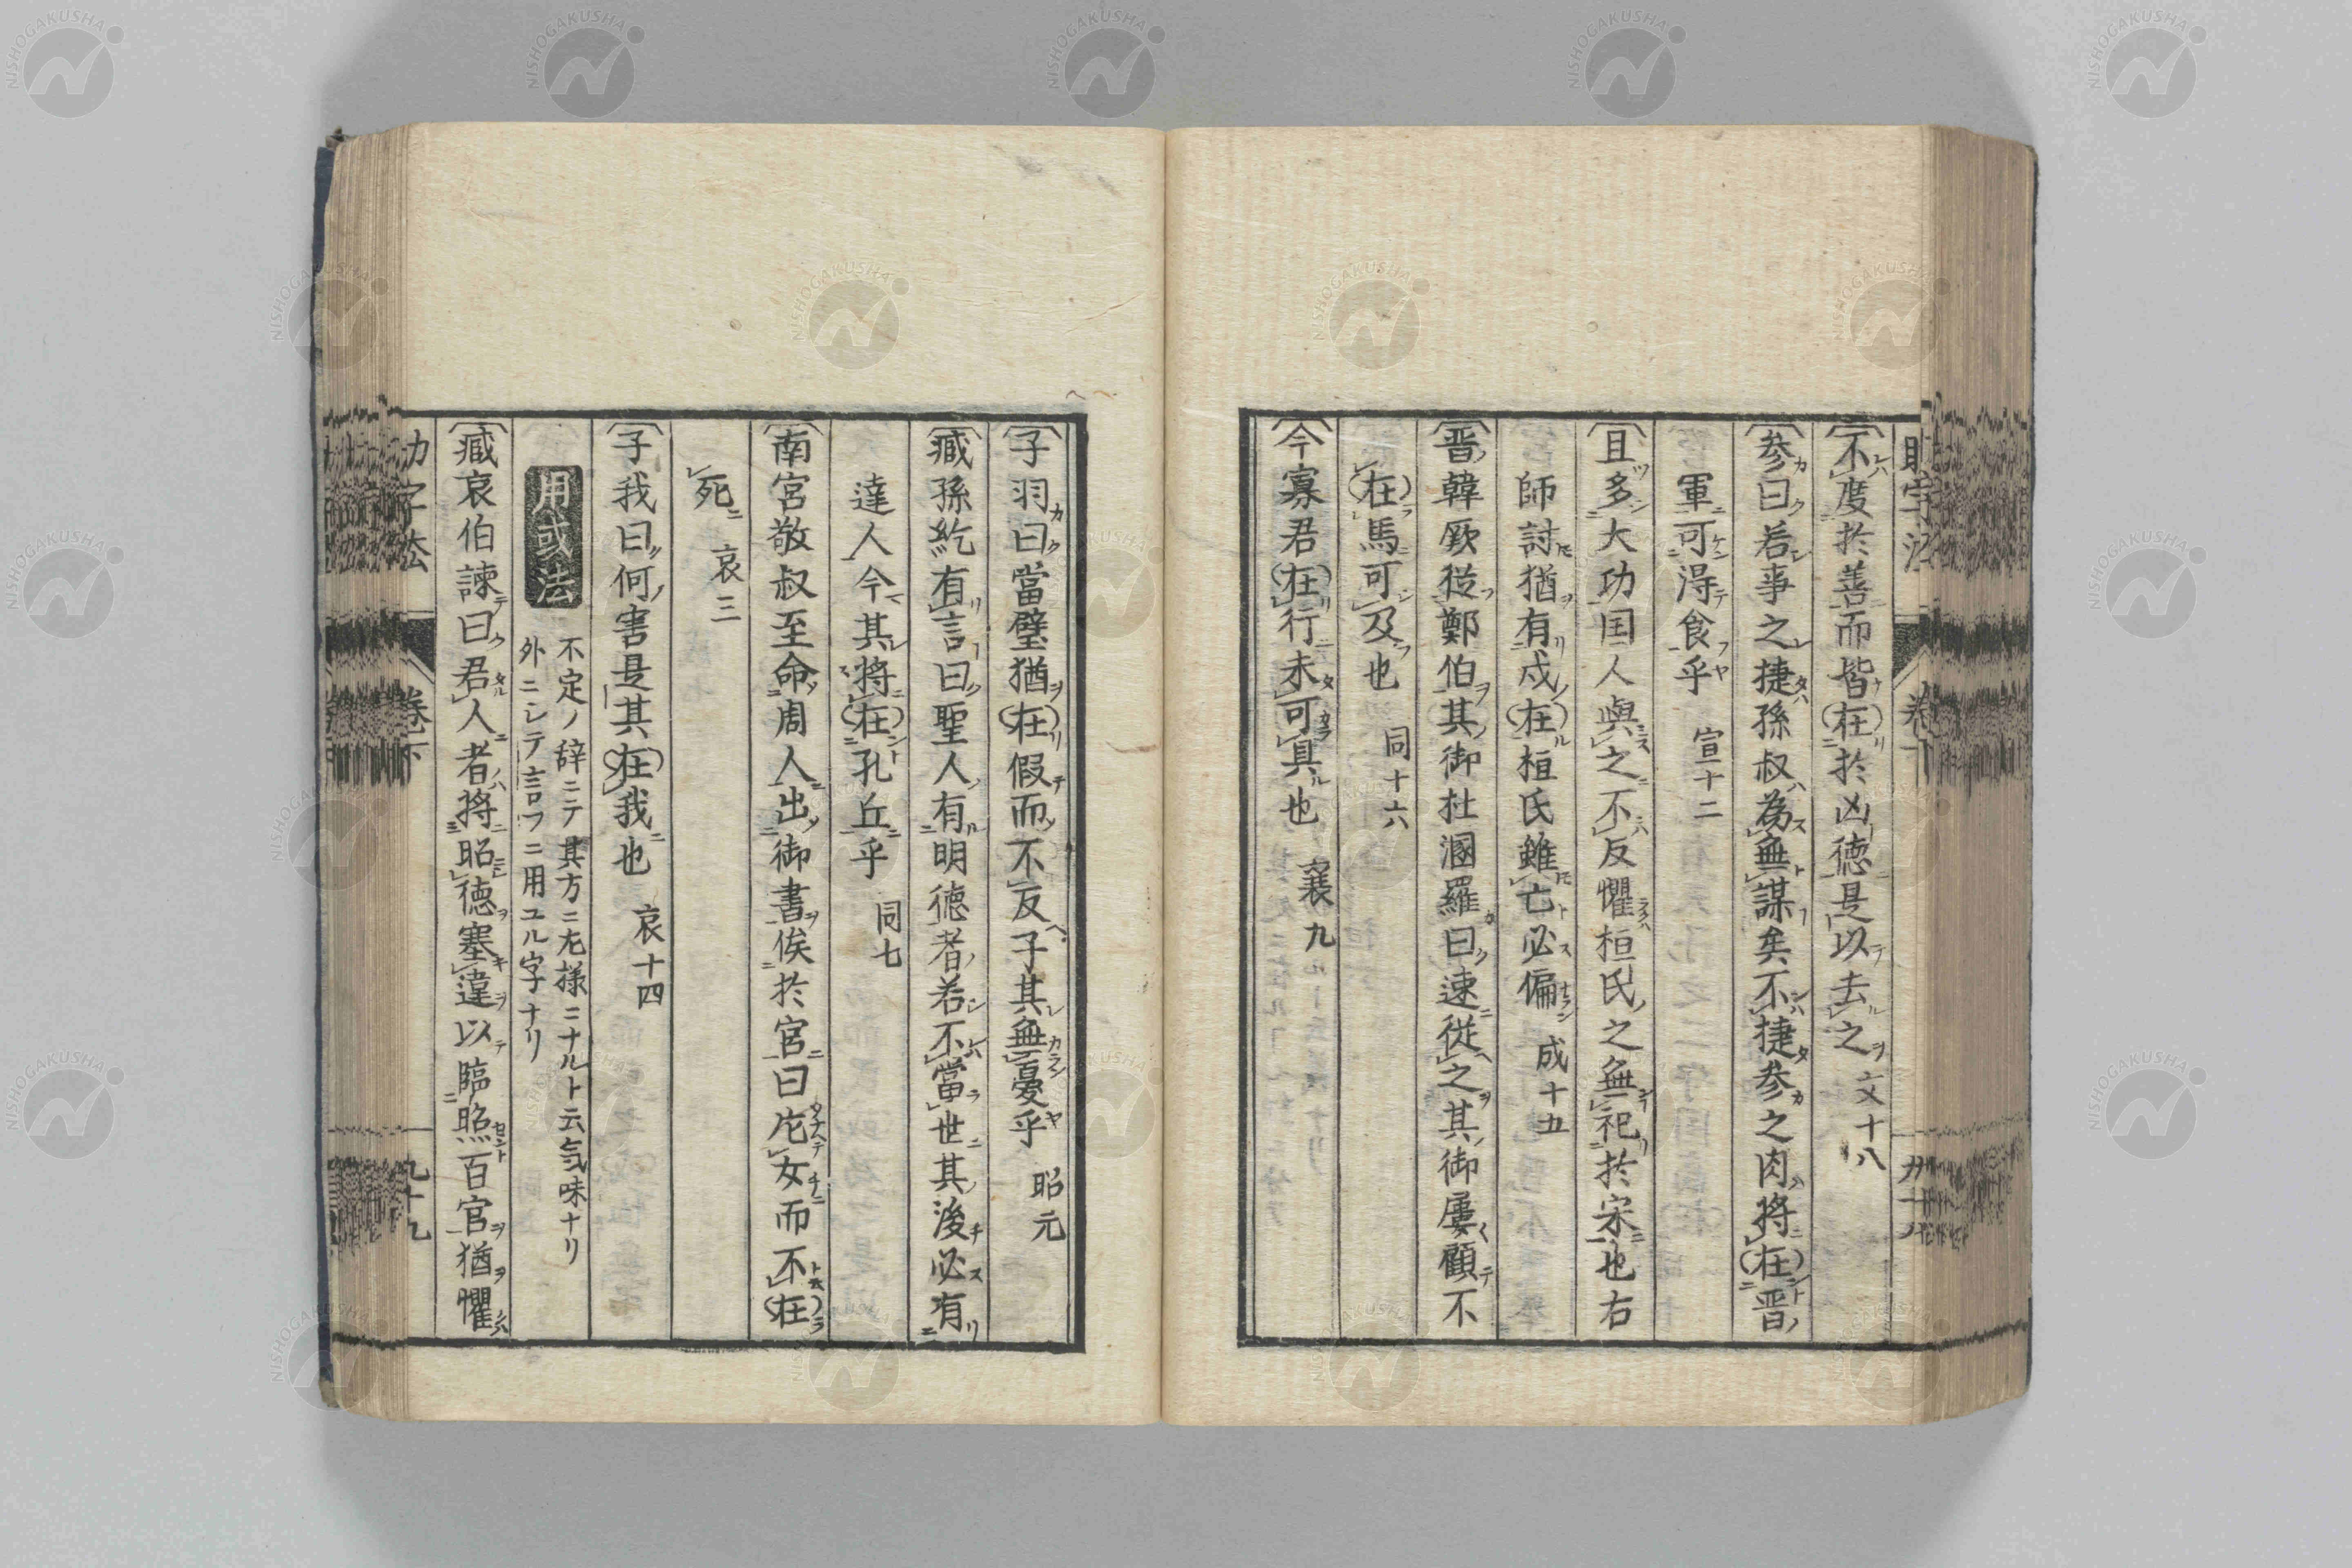 不度於善而皆在於凶徳是以去之 文十八
参曰若事之捷孫叔為無謀矣不捷参之肉将在晋
軍可得食乎 宣十二
且多大功国人與之不反懼桓氏之無祀於宋也右
師討猶有戍在桓氏雖亡必偏 成十五
晋韓厥従鄭伯其御杜溷羅曰速従之其御屢顧不
在馬可及也 同十六
今寡君在行未可具也 襄九
子羽曰當璧猶在假而不反子其無憂乎 昭元
臧孫紇有言曰聖人有明徳者若不當世其後必有
達人今其将在孔丘乎 同七
南宮敬叔至命周人出御書俟於宮曰庀女而不在
死 哀三
子我曰何害是其在我也 哀十四
用或法
不定ノ辞ニテ其方ニ左様ニナルト云気味ナリ
外ニシテ言フニ用ユル字ナリ
臧哀伯諫曰君人者将昭徳塞違以臨照百官猶懼
巻下
九十九
NISHOGAKUSHA